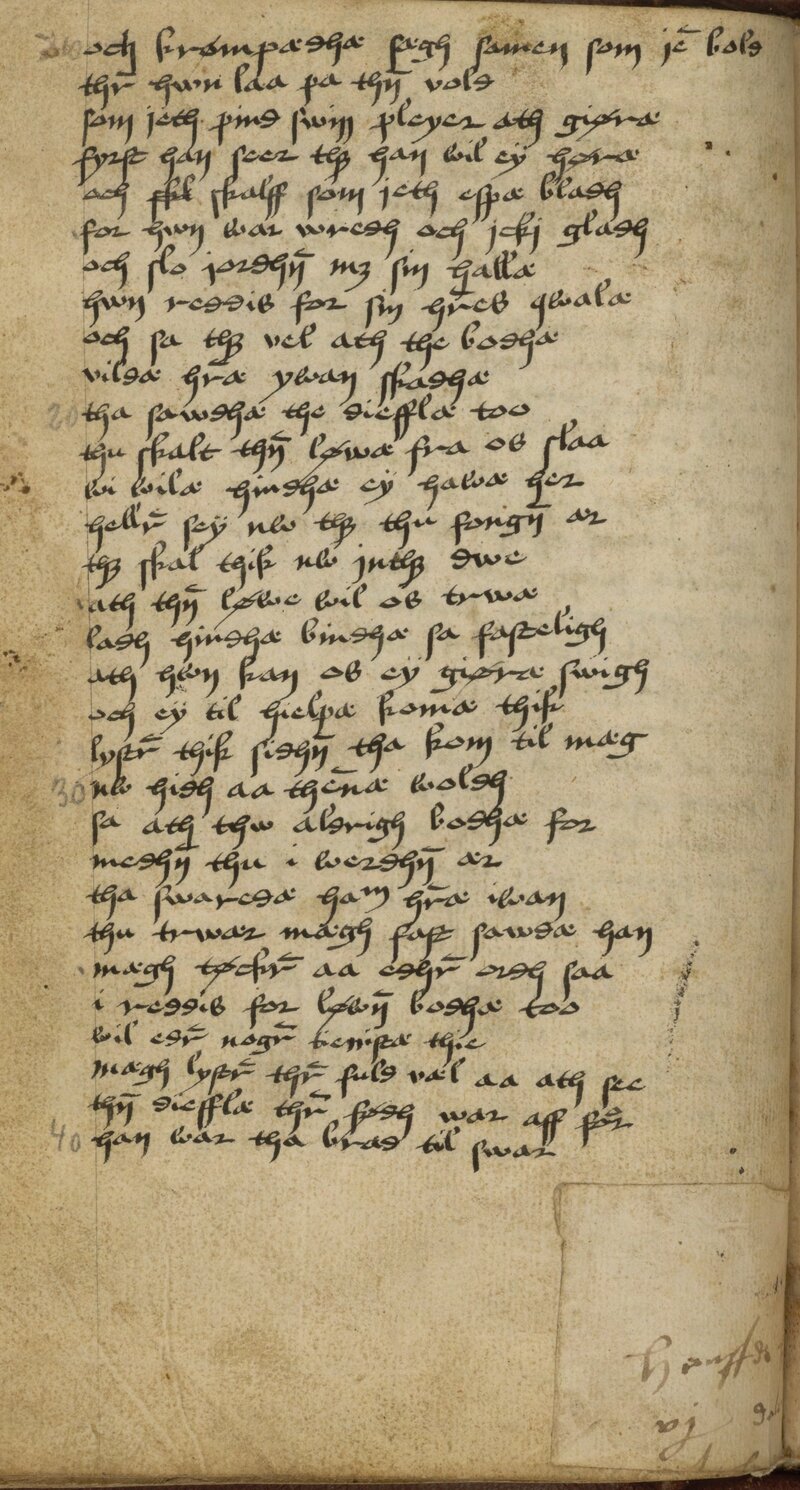 och krømpædhæ sægh samen som jet̄ bold
thr̄ hwn laa pa thn̄ vold
som jeth pind swin pleyer ath giøræ
fyrst han seer thꝫ han wil ey høræ
och skalff som jeth espæ bladh
for hwn war wredh och jckj gladh
och slo jordhn̄ mꝫ sin hallæ
hwn reddis for sin hr̄es qwalæ
och sa thꝫ vel ath the bodhæ
vildæ hr̄æ ywan skadhæ
20 tha sawdhæ the diefflæ too
thu skalt thn̄ løwæ fra os slaa
wi wilæ hindhæ ey hawæ her
hellr̄ sey nw thꝫ thu fongn̄ ær
thꝫ skal thik nw jnthꝫ dwe
ath thn̄ løwe wil os trwæ
ladh hindhæ bindhæ sa fasteligh
ath hwn kan os ey giøræ swigh
och ey til hielpæ komæ thik
lystr̄ thik sidhn̄ tha kom til mæg
30 nw hidh aa then̄æ woldh
sa ath thw aldrigh bodhæ for
medhn̄ thu i werdhn̄ ær
tha swaredæ ham hr̄æ iwan
thu trwær mægh fast sawdæ han
mægh tøckr̄ aa edhr̄ ordh saa
i reddis for løwn̄ bodhæ too
wil edr̄ nogr̄ kempæ thie
mægh lystr̄ thr̄ fuld væl aa ath see
thn̄ diefflæ thr̄ fødh war aff for
40 han war tha brad til swar
vj